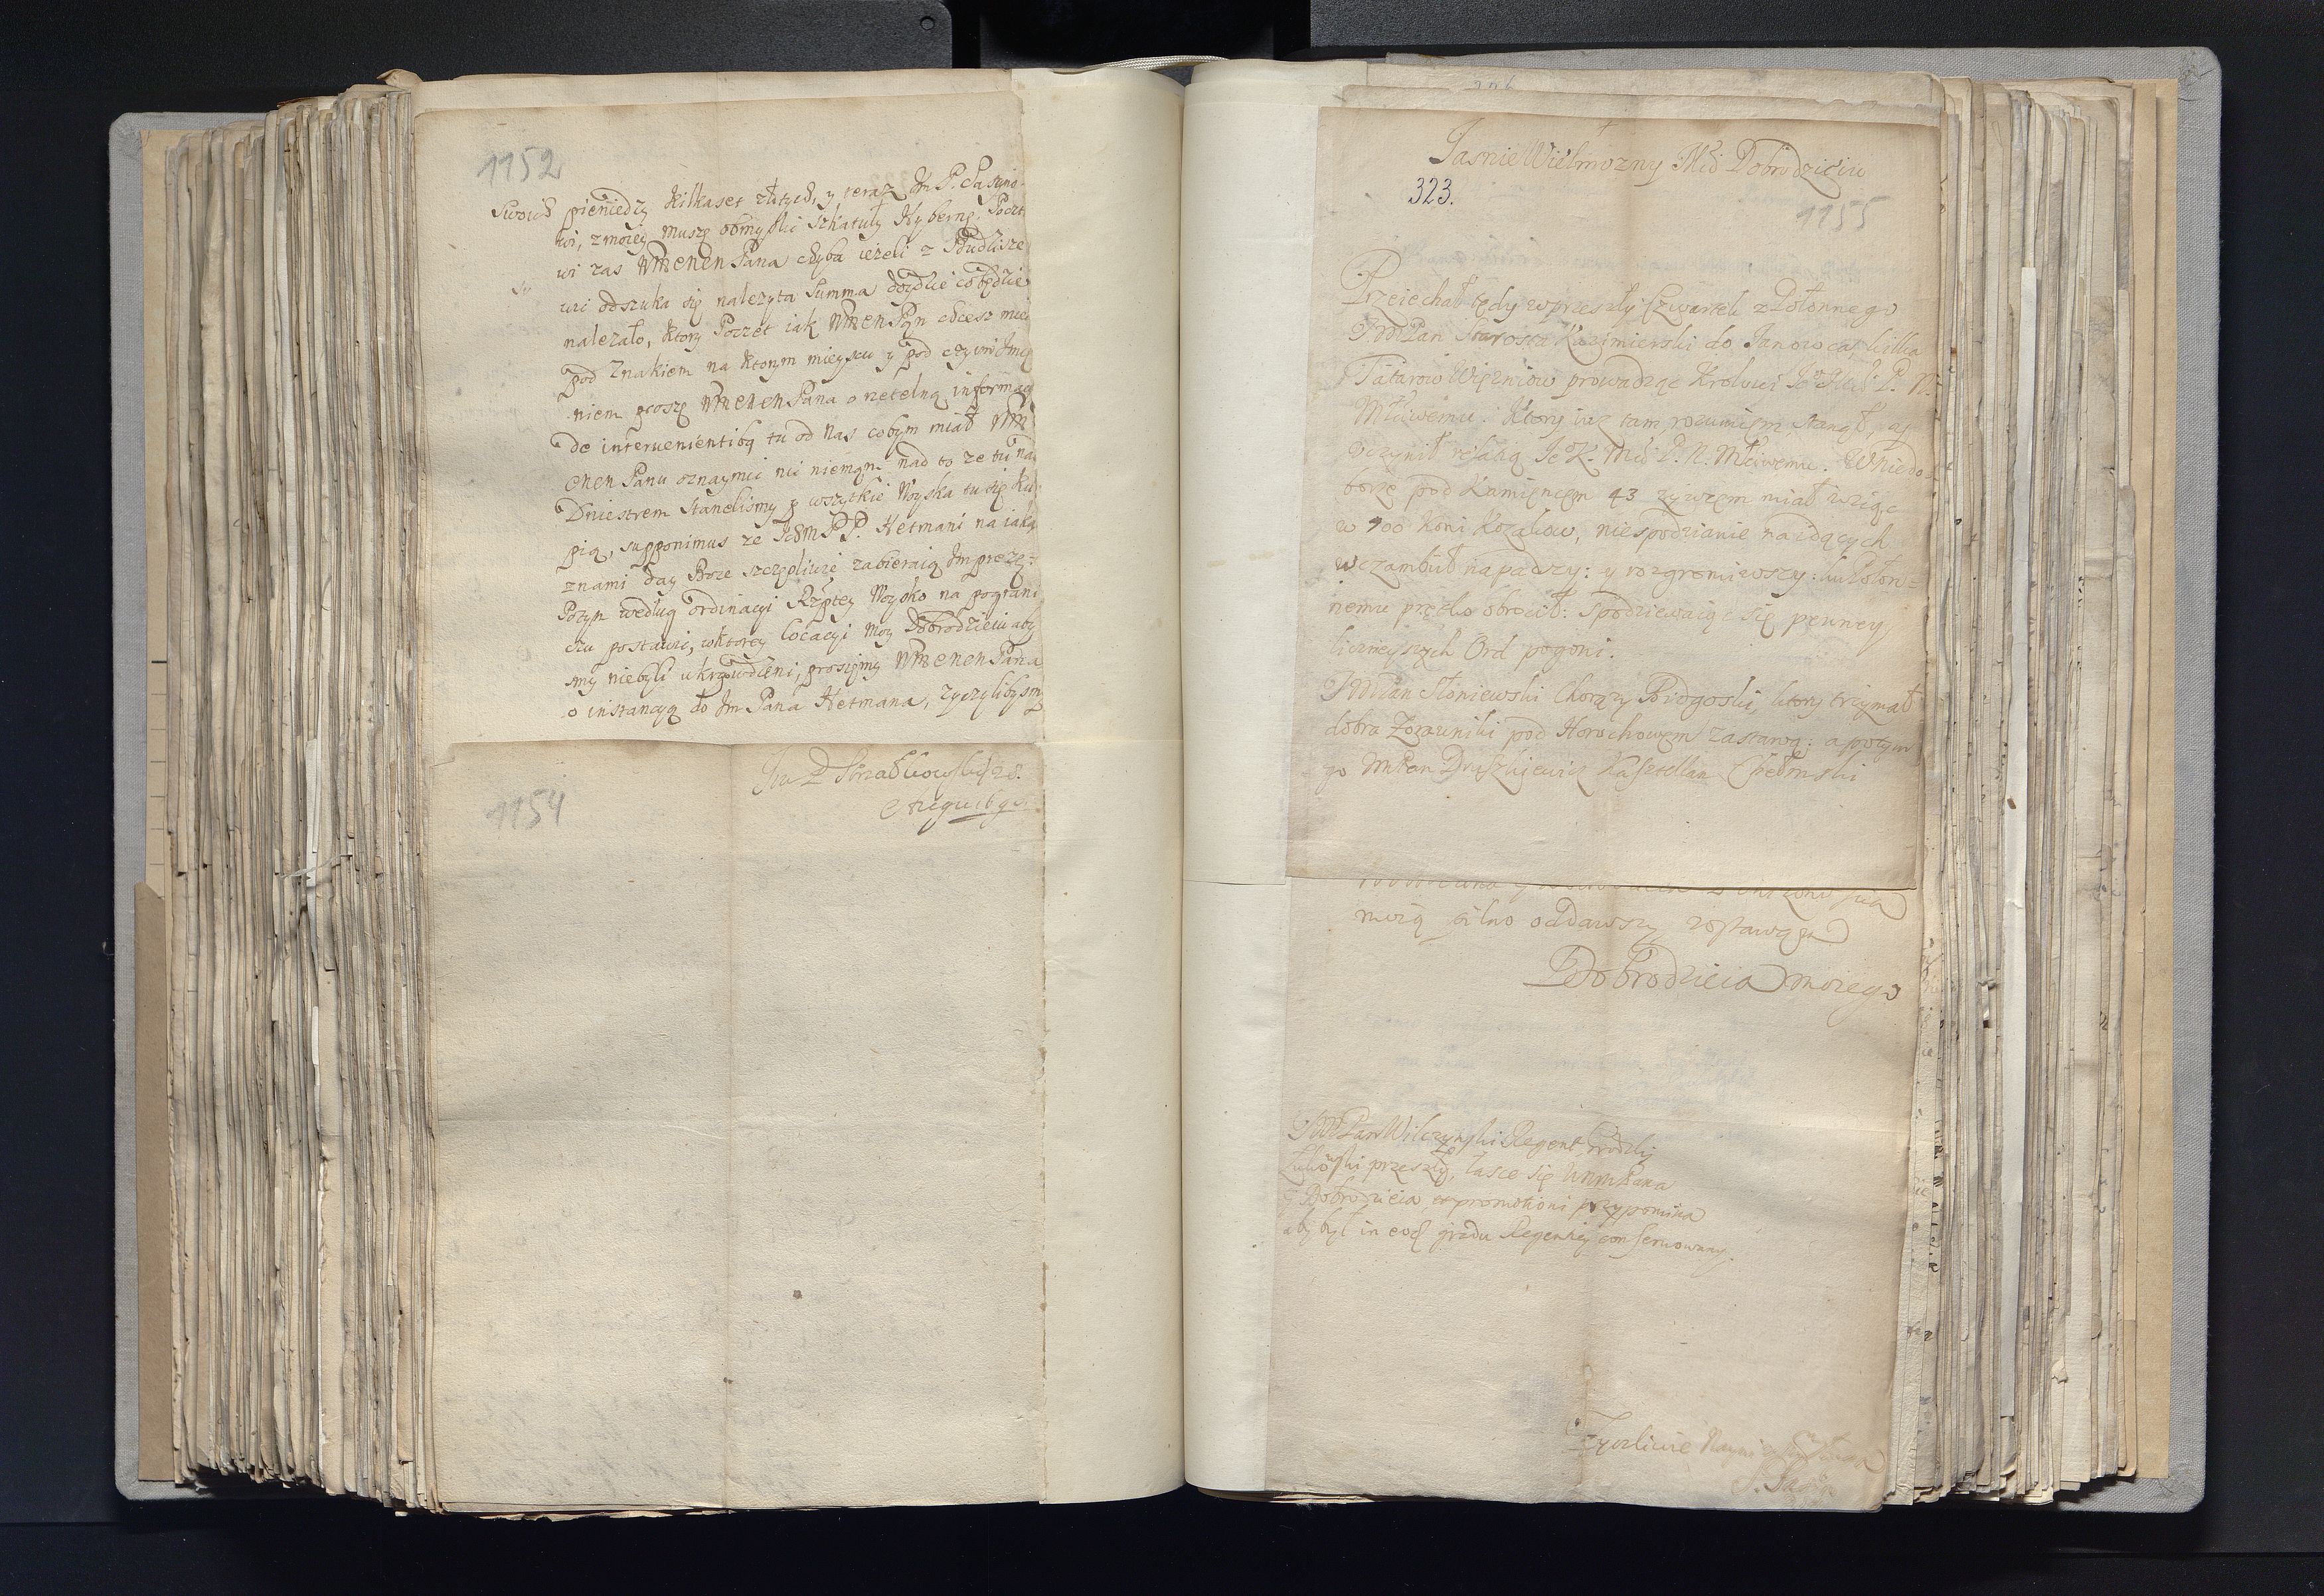 1152
Swoich pieniedzy kilkaset złotych, y teraz Jm P.
wi, z moiey muszę obmyslic szkatuły Hyberne. Poczt
wi zas WMMenenPana chyba ieżeli z
wi odszuka się nalezyta Summa doydzie co będzie
nalezało, ktory Poczet iak WMMenPan chcesz miec
pod Znakiem na ktorym mieyscu y pod czyim Imię
niem proszę WMMenenPana o rzetelną informacy
de intervenientibq tu od Nas cobym miał WM
enen Panu oznaymic nic niemąm nad to ze tu nad
Dniestrem Stanelismy y wszytkie Woyska tu się ku
pią, supponimus ze IchMPP. Hetmani na iaką
znami day Boze szczęsliwie zabieraią Imprezę:
Potym według ordinacyi Rzptey Woysko na pograni
czu postawic, wktorey locacyi Moy Dobrodzieiu aby
smy niebyli ukrzywdzeni, prosięmy WMMenen Pana
o instancyą do Jm Pana Hetmana, zyczylibysmy
1154
Jm P
323.
Jasnie Wielmozny Mći Dobrodzieiu
1155
Przeiechał tędy wprzeszły Czwartek z Połonnego
JMPan Starosta Kazimierski do Janowca, kilka
Tatarow Więzniow prowadząc Krolowi Je Mći P. N.
Młściwemu. Ktory iuz tam rozumiem stanął, aj
uczynił relatią Je K. Mći P. N. Młściwemu. W niedo
borze pod Kamięncem 43 zywcem miał wziąc
w 700 koni Kozakow, niespodzianie na idących
w czambuł napadszy: y rozgromiwszy: ku Połon=
nemu prętko obrocił: Spodziewaiąc się pewney
licznieyszych Ord pogoni.
JMPan Słoniewski Chorąży Podgoski, ktory trzymał
dobra Zorawniki pod Horochowem zastawą: a potym
go JmPan Druszkiewicz Kasztellan Chełmski
moią pilno oddawszy zostawąm
Dobrodzieia moiego
JMPan Wilczynski Regent Grodzki
przeszły, łasce się WMMPana
y Dobrodzieia, et promotioni przypomina
aby był in eod gradu Regentiey conserwowany.
Zyczliwie